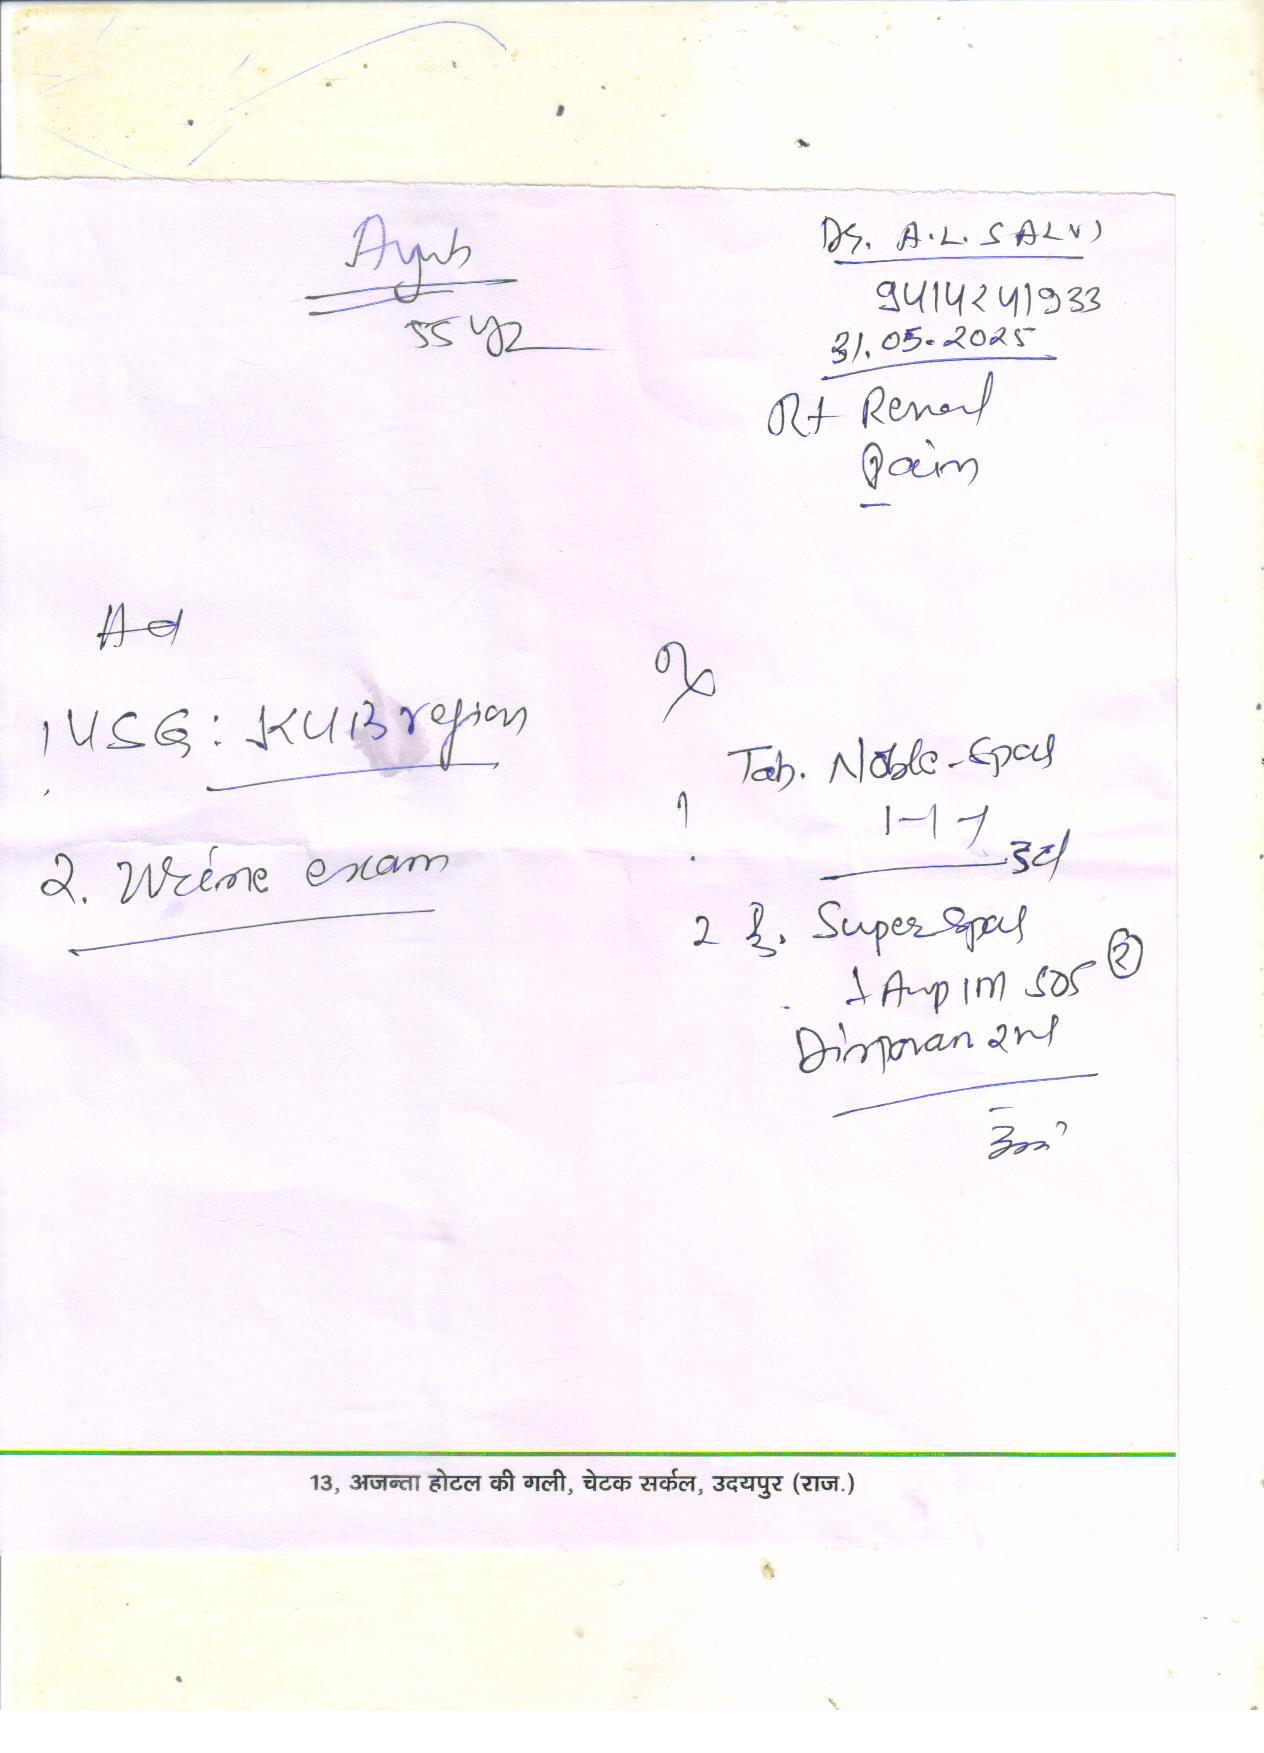 Ayub
55 yr
Dr. A.L. SALVI
9414241933
31.05.2025
Rt Renal
Pain
Ad
1 USG: KUB region
2. Urine exam
Rx
1. Tab. Noble-Spas
1-1-1
3d
2 Inj. Superspas
1 Amp IM SOS (2)
2ml
13, अजन्ता होटल की गली, चेटक सर्कल, उदयपुर (राज.)